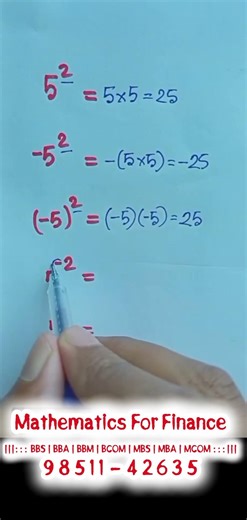 5² = 5×5 = 25
-5² = -(5×5) = -25
(-5)² = (-5)(-5) = 25
⁻² =
=
Mathematics For Finance
|||::: BBS | BBA | BBM | BCOM | MBS | MBA | MCOM :::|||
98511-42635